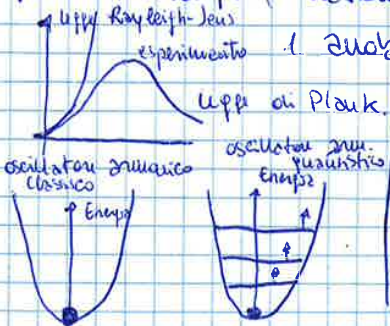 legge Rayleigh-Jens
esperimento
1. anal
legge di Plank.
oscillatore armonico
classico
Energia
oscillatore arm.
quantistico
Energia